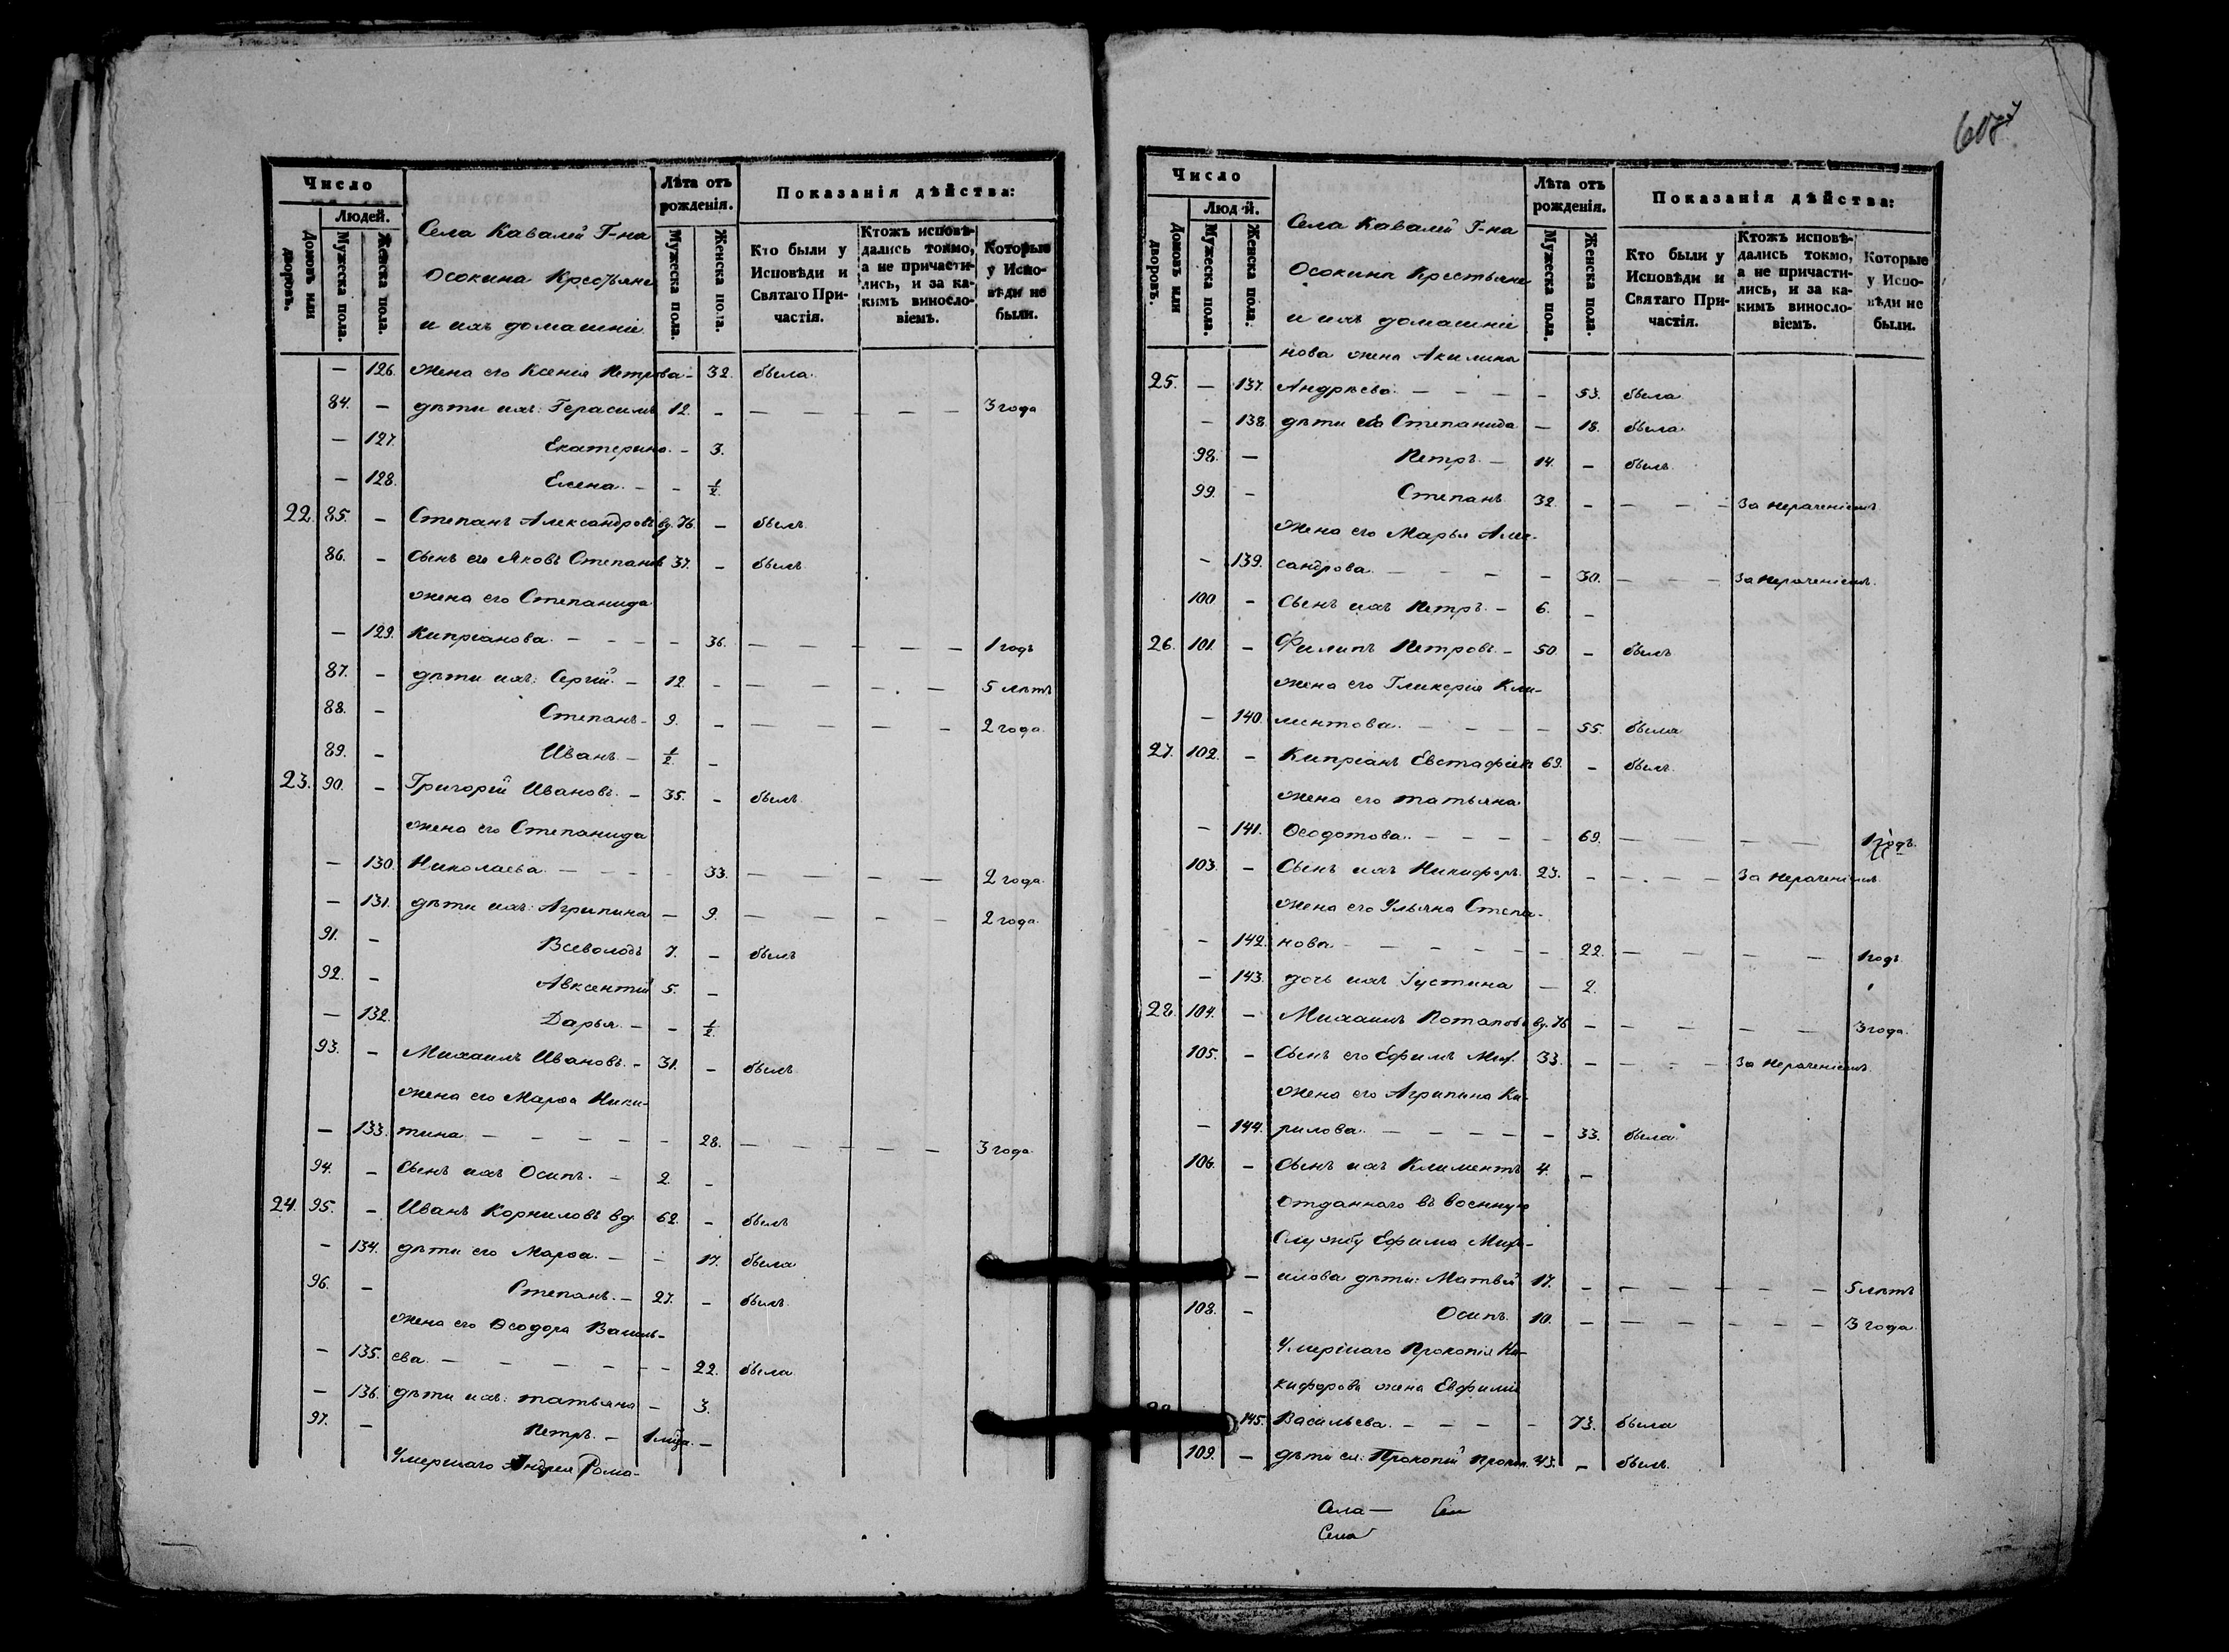 608
Число
Лѣта отъ рожденія.
Показанія дѣйства:
Людей.
Домовъ или дворовъ.
Мужеска пола.
Женска пола.
Села Кавалей Г-на
Осокина Крестьяне
и ихъ домашніе
Мужеска пола.
Женска пола.
Кто были у Исповѣди и Святаго Причастія.
Ктожъ исповѣдались токмо, а не причастились, и за какимъ винословіемъ.
Которые у Исповѣди не были.
— 126. жена его Ксенія Петрова — 32. была
84. — дѣти ихъ: Герасимъ 12. — — — — — — 3 года
— 127. Екатерина — 3.
— 128. Елена — — ½
22. 85. — Степанъ Александровъ вд. 76. — былъ
86. — Сынъ его Яковъ Степановъ 37. — былъ
жена его Степанида
— 129. Кипріанова — — — — 36. — — — — — 1 годъ
87. — дѣти ихъ: Сергій — 12 — — — — — 5 лѣтъ
88. — Степанъ — 9. — — — — — — 2 года
89. — Иванъ — ½ —
23. 90. — Григорій Ивановъ — 35. — былъ
жена его Степанида
— 130. Николаева — — — — 33. — — — — 2 года
— 131. дѣти ихъ: Агрипина — 9. — — — — 2 года
91. — Всеволодъ 7. — былъ
92. — Авксентій 5. —
— 132. Дарья — — ½
93. — Михаилъ Ивановъ — 31. — былъ
жена его Марѳа Ники-
— 133. тина — — — — — 28. — — — — — 3 года
94. — Сынъ ихъ Осипъ — 2. —
24. 95. — Иванъ Корниловъ вд. 62. — былъ
— 134. дѣти его Марѳа — — 17. была
96. — Степанъ — 27. — былъ
жена его Ѳеодора Василь-
— 135. ева — — — — — — 22. была
— 136. дѣти ихъ: Татьяна — 3.
97. — Петръ —
Умершаго Андрея Рома-
Число
Лѣта отъ рожденія.
Показанія дѣйства:
Людей.
Домовъ или дворовъ.
Мужеска пола.
Женска пола.
Села Кавалей Г-на
Осокина Крестьяне
и ихъ домашніе
Мужеска пола.
Женска пола.
Кто были у Исповѣди и Святаго Причастія.
Ктожъ исповѣдались токмо, а не причастились, и за какимъ винословіемъ.
Которые у Исповѣди не были.
нова жена Акилина
25. — 137. Андреева — — — — 53. была
— 138. дѣти ея Степанида — 18. была
98. — Петръ — 14. — былъ
99. — Степанъ 32. — — — — За нераченіемъ
жена его Марья Алек-
— 139. сандрова — — — — 30. — — — За нераченіемъ
100. — Сынъ ихъ Петръ — 6. —
26. 101. — Филипъ Петровъ — 50. — былъ
жена его Гликерія Кли-
— 140. ментова — — — — 55. была
27. 102. — Кипріанъ Евстафіевъ 69. — былъ
жена его Татьяна
— 141. Ѳеодотова — — — — 69. — — — — 1 годъ
103. — Сынъ ихъ Никифоръ 23. — — — — За нераченіемъ
жена его Ульяна Степа-
— 142. нова — — — — — 22. — — — — 1 годъ
— 143. дочь ихъ Іустина — 2.
28. 104. — Михаилъ Потаповъ вд. 76 — — — — — 3 года
105. — Сынъ его Ефимъ Мих. 33. — — — — За нераченіемъ
жена его Агрипина Ки-
— 144. рилова — — — — — 33. была
106. — Сынъ ихъ Климентъ 4. —
Отданнаго въ военную
Службу Ефима Миха-
— илова дѣти: Матвей 17. — — — — — — 5 лѣтъ
108. — Осипъ 10. — — — — — — 3 года
Умершаго Прокопія Ни-
кифорова жена Евфимія
145. Васильева — — — — 73. была
109. — дѣти ея: Прокопій Прокоп. 43. — былъ
Села —
Села